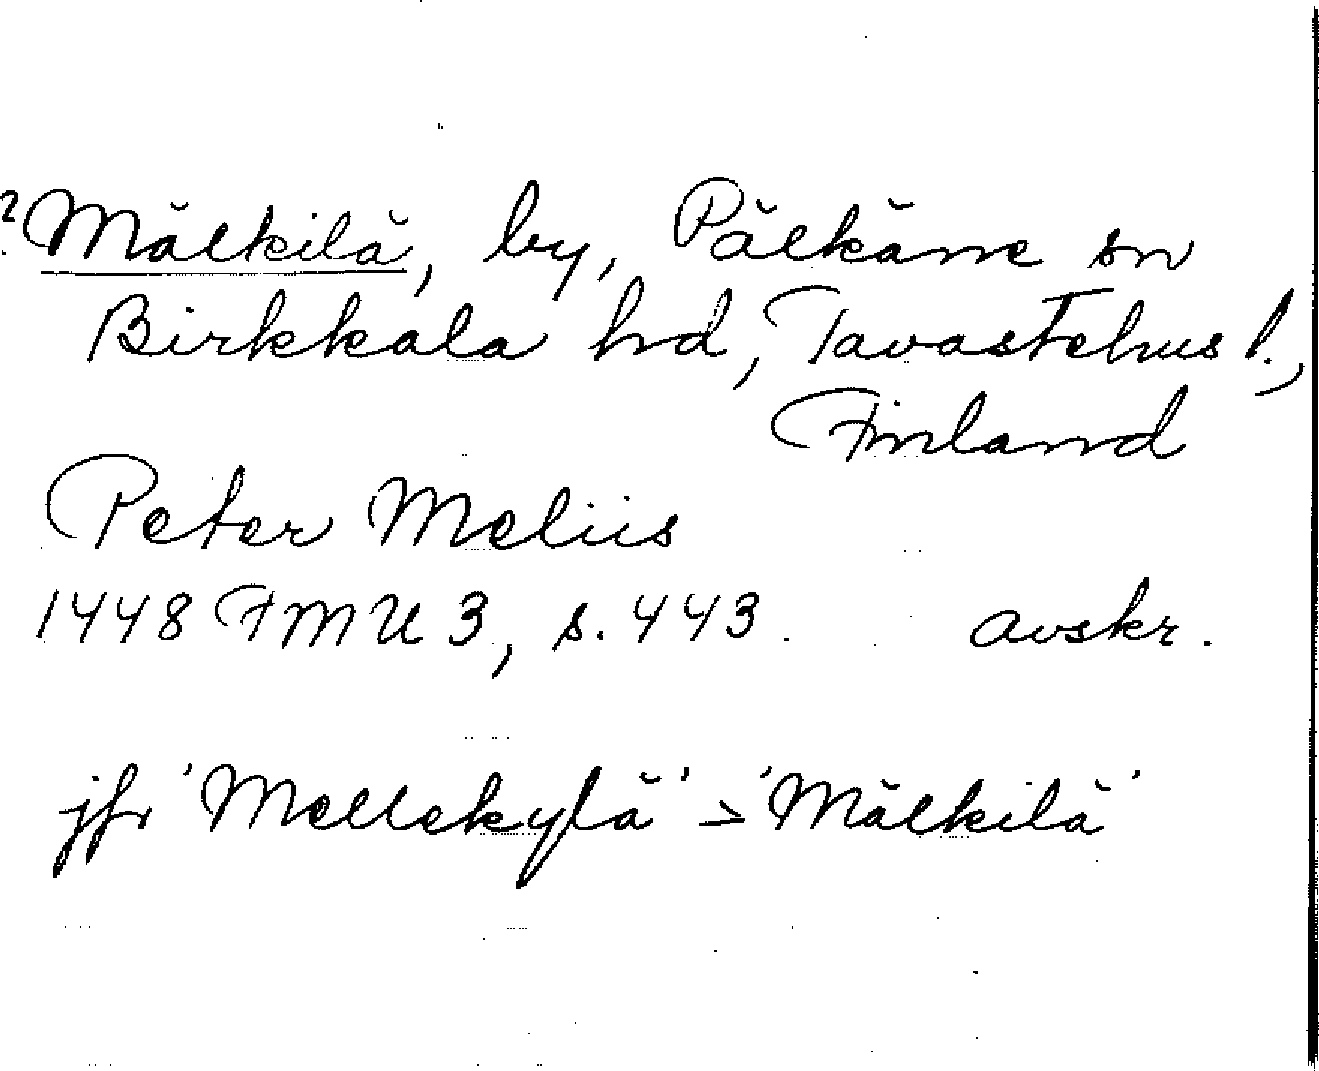 ? Mälkilä, by, Pälkäne sn
Birkkala hd, Tavastehus l.,
Finland
Peter Meliis
1448 FMU 3, s. 443. avskr.
jfr 'Mellekylä' > 'Mälkilä'